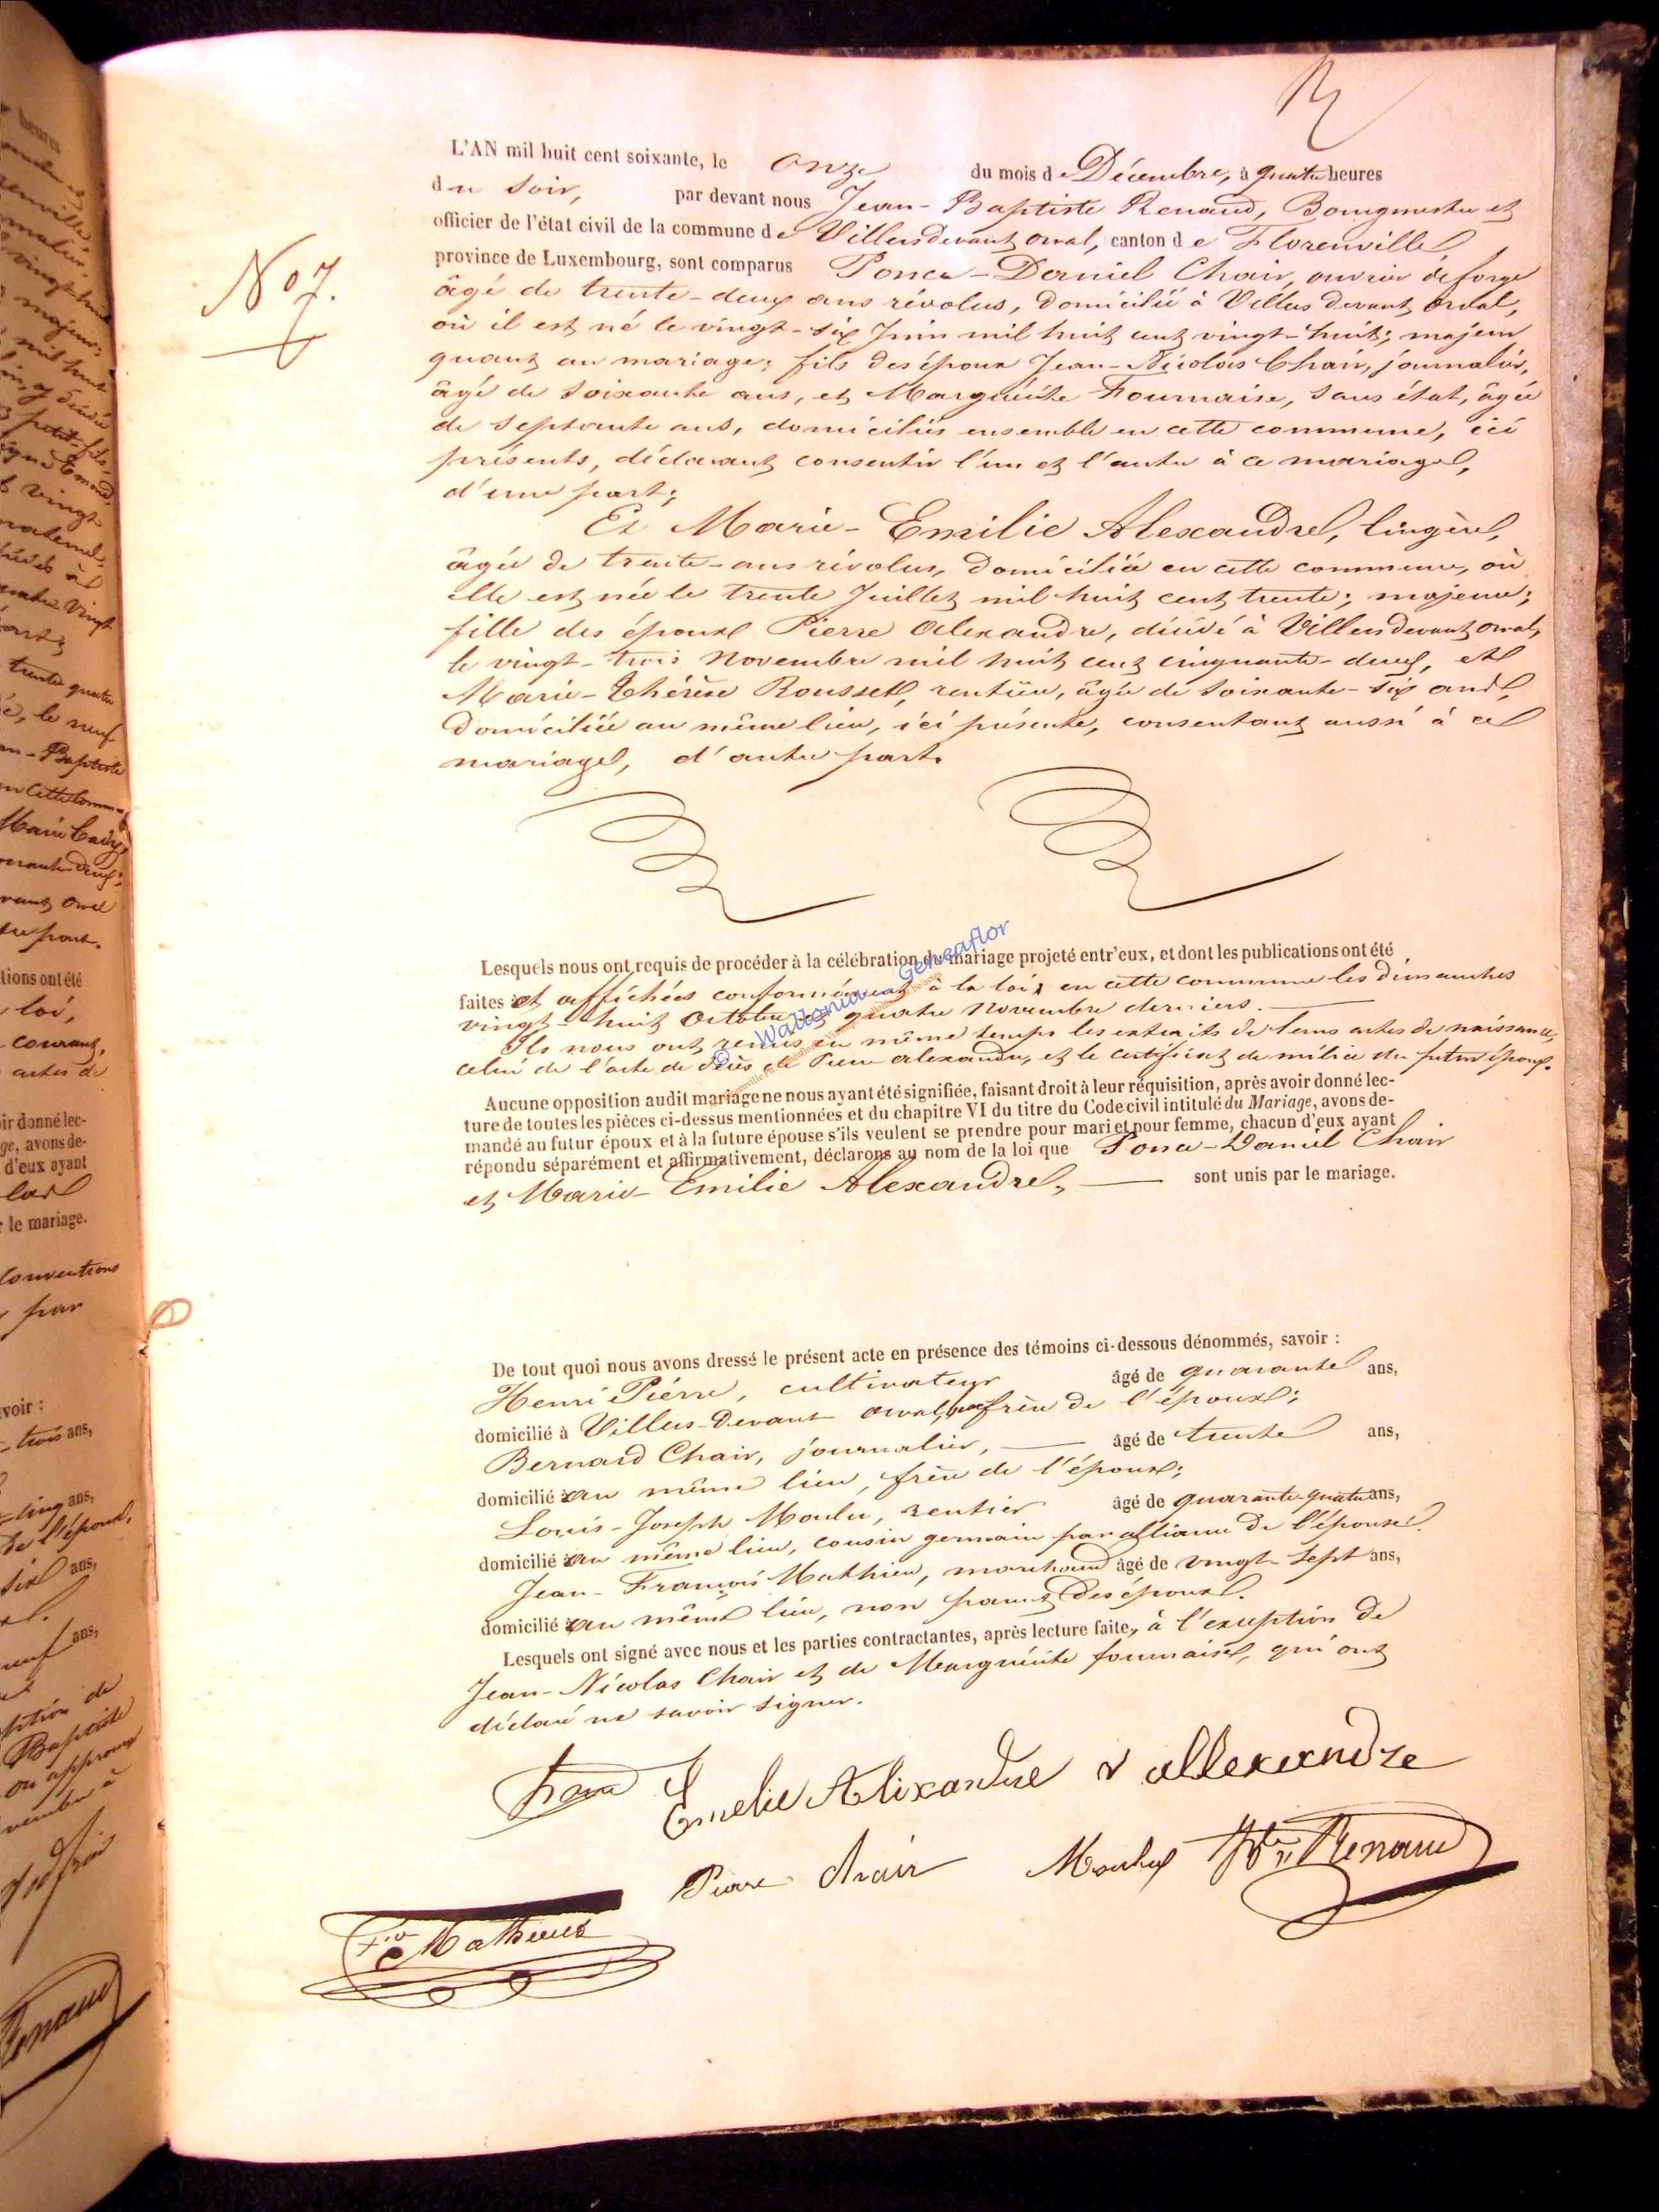 N° 7.
L'AN mil huit cent soixante, le onze du mois de Décembre, à quatre heures
du soir, par devant nous Jean-Baptiste Renaud, Bourgmestre et
officier de l'état civil de la commune de Villersdevant orval, canton de Florenville
province de Luxembourg, sont comparus Ponce-Daniel Chair, ouvrier de forge
âgé de trente-deux ans révolus, domicilié à Villers devant orval,
où il est né le vingt-six Juin mil huit cent vingt-huit; majeur
quant au mariage; fils des époux Jean-Nicolas Chair, journalier,
âgé de soixante ans, et Marguérite Fournaise, sans état, âgée
de septante ans, domiciliés ensemble en cette commune, ici
présents, déclarant consentir l'un et l'autre à ce mariage,
d'une part;
Et Marie-Emilie Alexandre, lingère,
âgée de trente-ans révolus, domiciliée en cette commune, où
elle est née le trente Juillet mil huit cent trente; majeure;
fille des époux Pierre Alexandre, décédé à Villersdevant orval,
le vingt-trois Novembre mil huit cent cinquante-deux, et
Marie-Thérèse Rousset, rentière, âgée de soixante-six ans,
domiciliée au même lieu, ici présente, consentant aussi à ce
mariage, d'autre part.
Lesquels nous ont requis de procéder à la célébration du mariage projeté entr'eux, et dont les publications ont été
faites et affichées conformément à la loi, en cette commune les dimanches
vingt-huit Octobre et quatre Novembre derniers.
Ils nous ont remis en même temps les extraits de leurs actes de naissance,
celui de l'acte de décès de Pierre Alexandre, et le certificat de milice du futur époux.
© Wallonia Geneaflor
Aucune opposition audit mariage ne nous ayant été signifiée, faisant droit à leur réquisition, après avoir donné lec-
ture de toutes les pièces ci-dessus mentionnées et du chapitre VI du titre du Code civil intitulé du Mariage, avons de-
mandé au futur époux et à la future épouse s'ils veulent se prendre pour mari et pour femme, chacun d'eux ayant
répondu séparément et affirmativement, déclarons au nom de la loi que Ponce-Daniel Chair
et Marie-Emilie Alexandre, sont unis par le mariage.
De tout quoi nous avons dressé le présent acte en présence des témoins ci-dessous dénommés, savoir :
Henri Piérre, cultivateur âgé de quarante ans,
domicilié à Villers-Devant orval, frère de l'époux;
Bernard Chair, journalier, âgé de trente ans,
domicilié au même lieu, frère de l'époux;
Louis-Joseph Moulu, rentier âgé de quarante-quatre ans,
domicilié au même lieu, cousin germain par alliance de l'épouse.
Jean-François Mathieu, marchand âgé de vingt-sept ans,
domicilié au même lieu, non parent des époux.
Lesquels ont signé avec nous et les parties contractantes, après lecture faite, à l'exception de
Jean-Nicolas Chair et de Marguérite fournaise, qui ont
déclaré ne savoir signer.
Emelie Alixandre v allexandre
Pierre chair Renaud
Mathieu